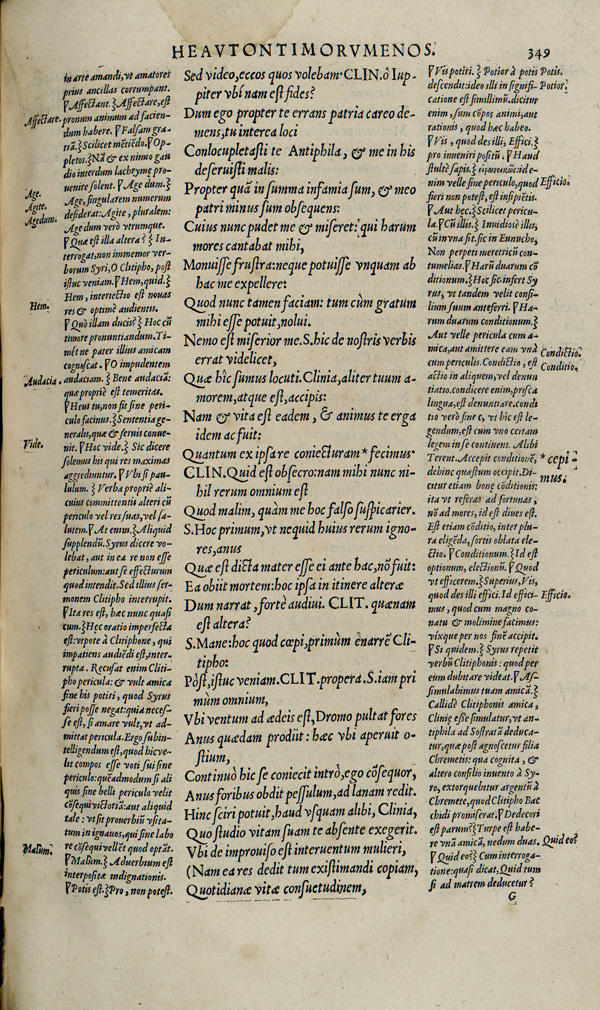 HEAVTONTIMORVMENOS.
349
in arte amandi, vt amatores
prius ancillas corrumpant.
¶ Affectant. ⸹ Affectare, est
pronum animum ad facien-
dum habere. ¶ Falsam gra-
tiā. ⸹ Scilicet mētiēdo. ¶ Op-
pletos. ⸹ Nā & ex nimo gau
dio interdum lachrymę pro-
uenire solent. ¶ Age dum. ⸹
Age, singularem numerum
desiderat: Agite, pluralem:
Age dum verò vtrumque.
¶ Quæ est illa altera? ⸹ In-
terrogat, non immemor ver-
borum Syri, O Clitipho, post
istuc veniam. ¶ Hem, quid. ⸹
Hem, interiectio est nouas
res & optimè audientis.
¶ Quò illam ducis? ⸹ Hoc cū
timore pronuntiandum. Ti-
met ne pater illius amicam
cognoscat. ¶ O impudentem
audaciam. ⸹ Bene audaciā:
quæ propriè est temeritas.
¶ Heus tu, non fit sine peri-
culo facinus. ⸹ Sententia ge-
neralis, quæ & seruis conue-
nit. ¶ Hoc vide. ⸹ Sic dicere
solemus his qui res maximas
aggrediuntur. ¶ Vbi si pau-
lulum. ⸹ Verba propriè ali-
cuius committentis alteri cū
periculo vel res suas, vel sa-
lutem. ¶ At enim. ⸹ Aliquid
supplendū. Syrus dicere vo-
lebat, aut in ea re non esse
periculum: aut se effecturum
quod intendit. Sed illius ser-
monem Clitipho interrupit.
¶ Ita res est, hæc nunc quasi
cum. ⸹ Hęc oratio imperfecta
est: vtpote à Clitiphone, qui
impatiens audiēdi est, inter-
rupta. Recusat enim Cliti-
pho pericula: & vult amica
sine his potiri, quod Syrus
fieri posse negat: quia neces-
se est, si amare vult, vt ad-
mittat pericula. Ergo subin-
telligendum est, quod hic ve-
lit compos esse voti sui sine
periculo: quēadmodum si ali
quis sine belli periculo velit
cōsequi victoriā: aut aliquid
tale: vt sit prouerbiū vsita-
tum in ignauos, qui sine labo
re cōsequi vellēt quod optāt.
¶ Malùm. ⸹ Aduerbium est
interpositæ indignationis.
¶ Potis est. ⸹ Pro, non potest.
Affectare.
Age.
Agite.
Agedum.
Hem.
Audacia.
Vide.
Malùm.
Sed video, eccos quos volebam. CLIN. ô Iup-
piter vbi nam est fides?
Dum ego propter te errans patria careo de-
mens, tu interea loci
Conlocupletasti te Antiphila, & me in his
deseruisti malis:
Propter quā in summa infamia sum, & meo
patri minus sum obsequens:
Cuius nunc pudet me & miseret: qui harum
mores cantabat mihi,
Monuisse frustra: neque potuisse vnquam ab
hac me expellere:
Quod nunc tamen faciam: tum cùm gratum
mihi esse potuit, nolui.
Nemo est miserior me. S. hic de nostris verbis
errat videlicet,
Quæ hîc sumus locuti. Clinia, aliter tuum a-
morem, atque est, accipis:
Nam & vita est eadem, & animus te erga
idem ac fuit:
Quantum ex ipsa re coniecturam * fecimus.
CLIN. Quid est obsecro: nam mihi nunc ni-
hil rerum omnium est
Quod malim, quàm me hoc falso suspicarier.
S. Hoc primum, vt nequid huius rerum igno-
res, anus
Quæ est dicta mater esse ei ante hac, nō fuit:
Ea obiit mortem: hoc ipsa in itinere alteræ
Dum narrat, fortè audiui. CLIT. quænam
est altera?
S. Mane: hoc quod cœpi, primùm enarrē Cli-
tipho:
Pòst, istuc veniam. CLIT. propera. S. iam pri
mùm omnium,
Vbi ventum ad ædeis est, Dromo pultat fores
Anus quædam prodiit: hæc vbi aperuit o-
stium,
Continuò hic se coniecit intrò, ego cōsequor,
Anus foribus obdit pessulum, ad lanam redit.
Hinc sciri potuit, haud vsquam alibi, Clinia,
Quo studio vitam suam te absente exegerit.
Vbi de improuiso est interuentum mulieri,
(Nam ea res dedit tum existimandi copiam,
Quotidianæ vitæ consuetudinem,
¶ Vis potiri. ⸹ Potior à potis
descendit: ideo illi in signifi-
catione est simillimū. dicitur
enim, sum cōpos animi, aut
rationis, quod hac habeo.
¶ Vis, quod des illi, Effici. ⸹
pro inueniri positū. ¶ Haud
stultè sapis. ⸹ εἰρωνικῶς: id e-
nim velle sine periculo, quod
fieri non potest, est insipiētis.
¶ Aut hęc. ⸹ Scilicet pericu-
la. ¶ Cū illis. ⸹ Inuidiosè illis,
cū in vna sit. sic in Eunucho,
Non perpeti meretricū con-
tumelias. ¶ Harū duarum cō
ditionum. ⸹ Hoc sic infert Sy
rus, vt tandem velit consi-
lium suum anteferri. ¶ Ha-
rum duarum conditionum. ⸹
Aut velle pericula cum a-
mica, aut amittere eam vnā
cum periculis. Conditio, est
actio in aliquem, vel denun
tiatio. condicere enim, prisca
lingua, est denuntiare. condi
tio verò sine c, vt hic est le-
gendum, est cum vno certam
legem in se continens. Alibi
Terent. Accepit conditionē,
dehinc quæstum occipit. Di-
citur etiam bonę cōditionis:
ita vt referas ad fortunas,
nō ad mores, id est diues est.
Est etiam cōditio, inter plu-
ra eligēda, fortis oblata ele-
ctio. ¶ Conditionum. ⸹ Id est
optionum, electionū. ¶ Quod
vt efficerem. ⸹ Superius, Vis,
quod des illi effici. Id effici-
mus, quod cum magno co-
natu & molimine facimus:
vixque per nos sinē accipit.
¶ Si quidem. ⸹ Syrus repetit
verbū Clitiphonis: quod per
eum dubitare videat. ¶ As-
simulabimus tuam amicā. ⸹
Callidè Clitiphonis amica,
Clinię esse simulatur, vt an-
tiphila ad Sostratā deduca-
tur, quæ post agnoscetur filia
Chremetis: qua cognita, &
altero consilio inuento à Sy-
ro, extorquebitur argentū à
Chremete, quod Clitipho Bac
chidi promiserat. ¶ Dedecori
est parum? ⸹ Turpe est habe-
re vnā amicā, nedum duas.
¶ Quid eo? ⸹ Cum interroga-
tione: quasi dicat, Quid tum
si ad matrem deducetur?
G
Potis.
Potior.
Efficio.
Condictio.
Conditio.
* cepi-
mus.
Efficio.
Quid eo?